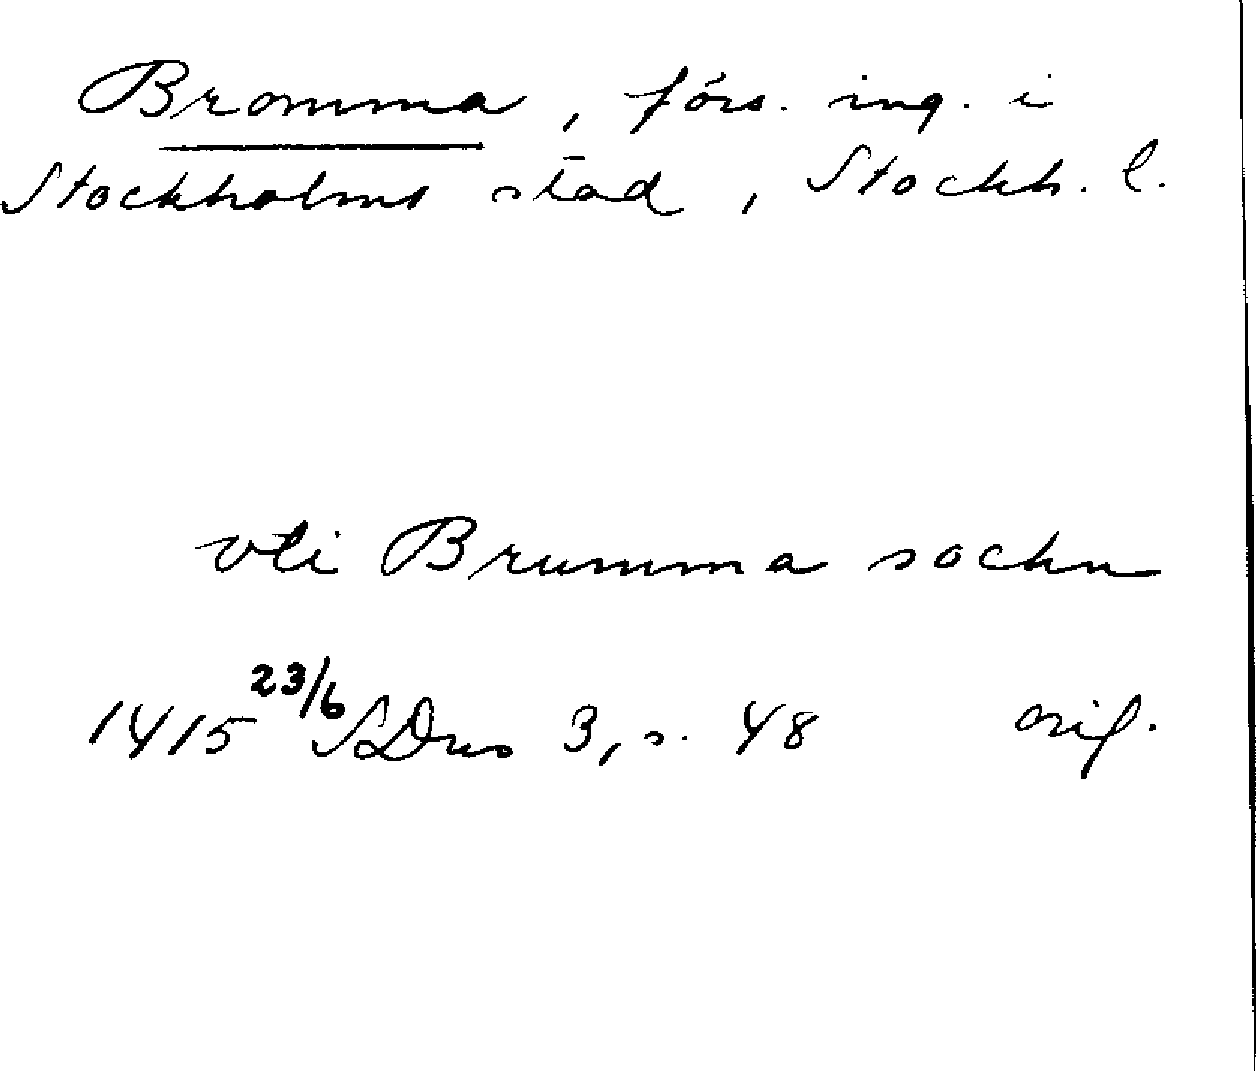 Bromma, förs. ing. i
Stockholms stad, Stockh. l.
vti Brumma sockn
1415 23/6 SDns 3, s. 48 orig.